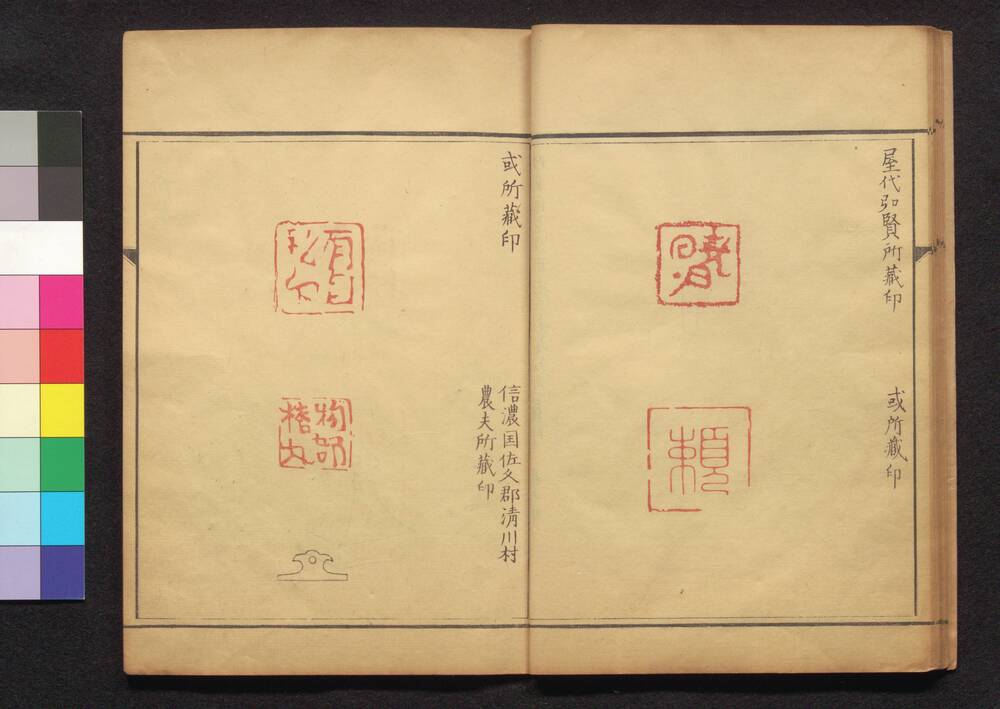 屋代弘賢所藏印
或所藏印
賴
或所藏印
信濃国佐久郡清川村
農夫所藏印
物部